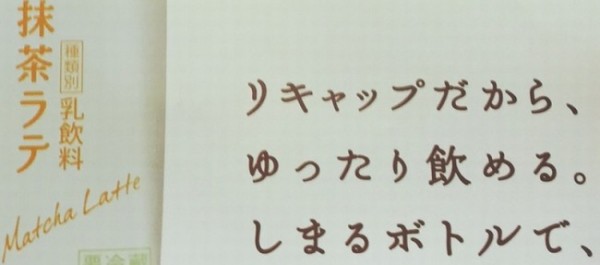 抹茶ラテ
種類別
乳飲料
Matcha Latte
要冷蔵
リキャップだから、
ゆったり飲める。
しまるボトルで、